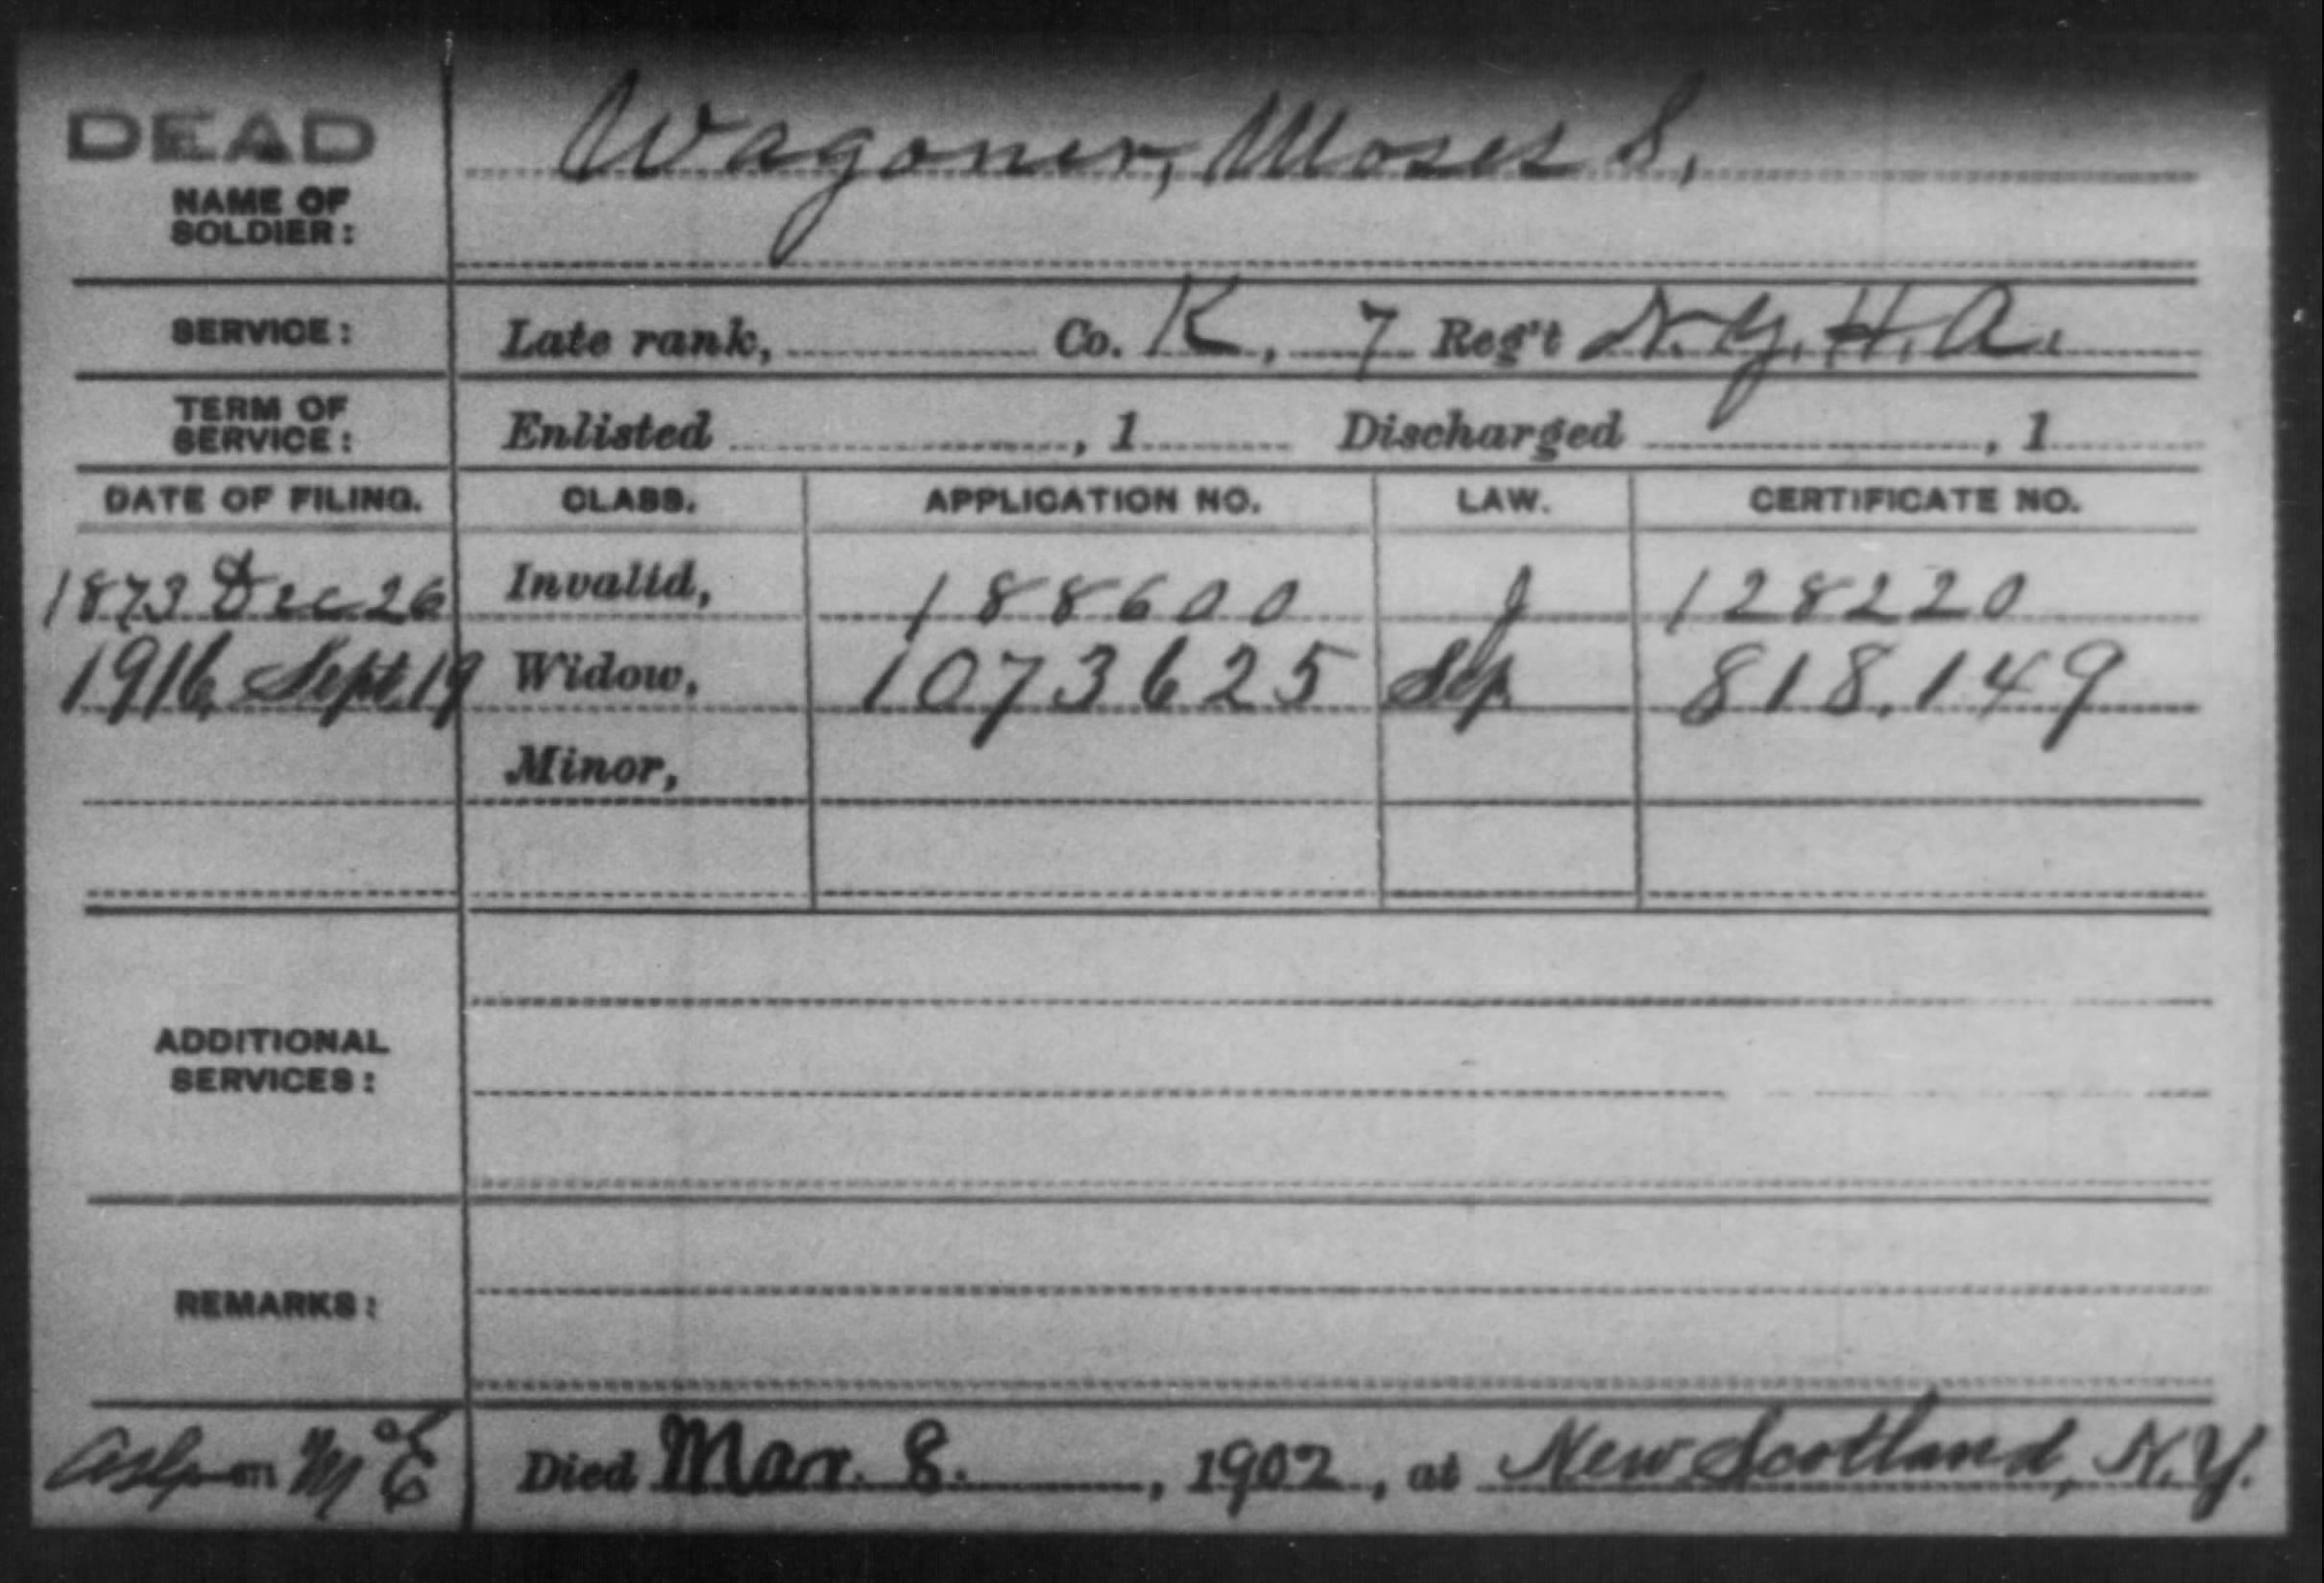 DEAD
Wagoner, Moses S.
NAME OF
SOLDIER:
SERVICE: Late rank, Co. K, 7 Reg't N.Y.H.A.
TERM OF
SERVICE: Enlisted , 1 Discharged , 1
DATE OF FILING. CLASS. APPLICATION NO. LAW. CERTIFICATE NO.
1873 Dec 26 Invalid, 188600 J 128220
1916, Sept. 19 Widow, 1073625 818,149
Minor,
ADDITIONAL
SERVICES:
REMARKS:
Died Mar. 8. , 1902, at New Scotland, N.Y.